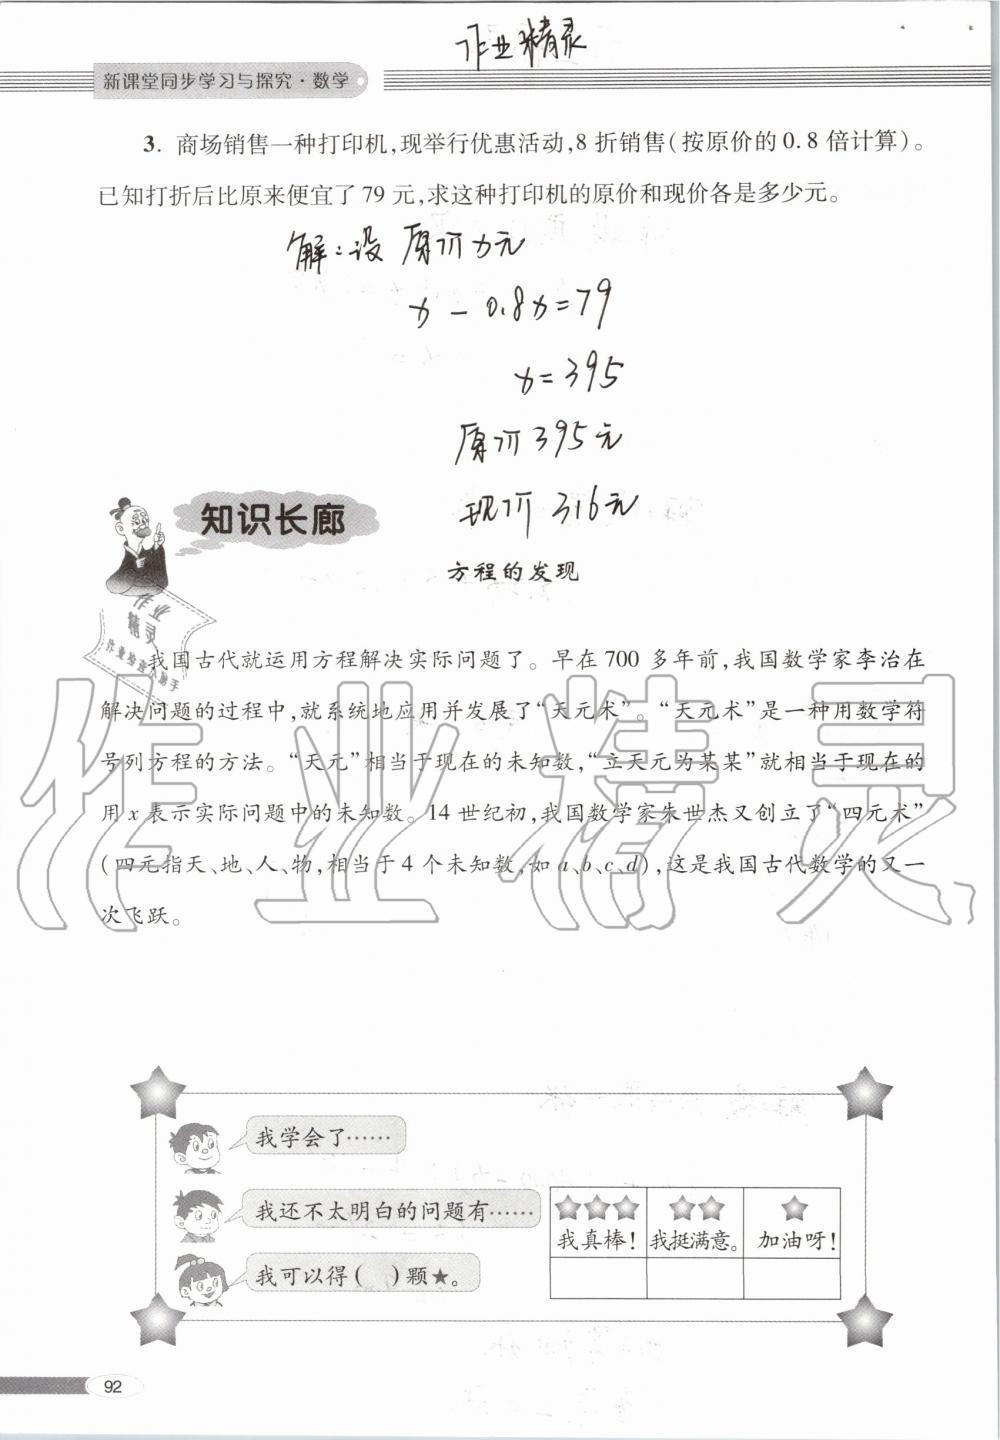 作业精灵
新课堂同步学习与探究·数学
3. 商场销售一种打印机,现举行优惠活动,8 折销售(按原价的 0.8 倍计算)。
已知打折后比原来便宜了 79 元,求这种打印机的原价和现价各是多少元。
解:设原价x元
x-0.8x=79
x=395
原价395元
现价316元
知识长廊
方程的发现
作业
精灵
我国古代就运用方程解决实际问题了。早在 700 多年前,我国数学家李冶在
解决问题的过程中,就系统地应用并发展了“天元术”。“天元术”是一种用数学符
号列方程的方法。“天元”相当于现在的未知数,“立天元为某某”就相当于现在的
用 x 表示实际问题中的未知数。14 世纪初,我国数学家朱世杰又创立了“四元术”
(四元指天、地、人、物,相当于 4 个未知数,如 a、b、c、d),这是我国古代数学的又一
次飞跃。
作业精灵
我学会了……
我还不太明白的问题有……
我真棒! 我挺满意。 加油呀!
我可以得( )颗★。
92